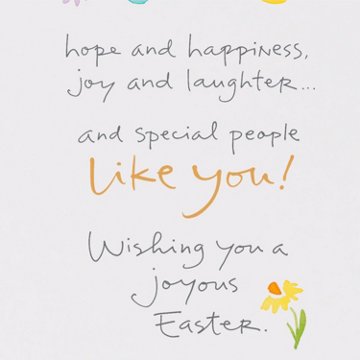 hope and happiness,
joy and laughter...
and special people
like you!
Wishing you a
joyous
Easter.